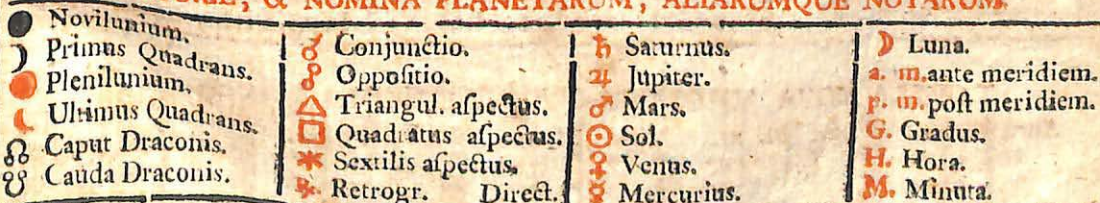 & NOMINA PLANETARUM, ALIARUMQUE NOTARUM.
Novilunium.
Primus Quadrans.
Plenilunium.
Ultimus Quadrans.
☊ Caput Draconis.
☋ Cauda Draconis.
☌ Conjunctio.
☍ Oppoſitio.
△ Triangul. aſpectus.
□ Quadratus aſpectus.
⚹ Sextilis aſpectus.
℞ Retrogr. Direct.
♄ Saturnus.
♃ Jupiter.
♂ Mars.
☉ Sol.
♀ Venus.
☿ Mercurius.
☽ Luna.
a. m. ante meridiem.
p. m. poſt meridiem.
G. Gradus.
H. Hora.
M. Minuta.